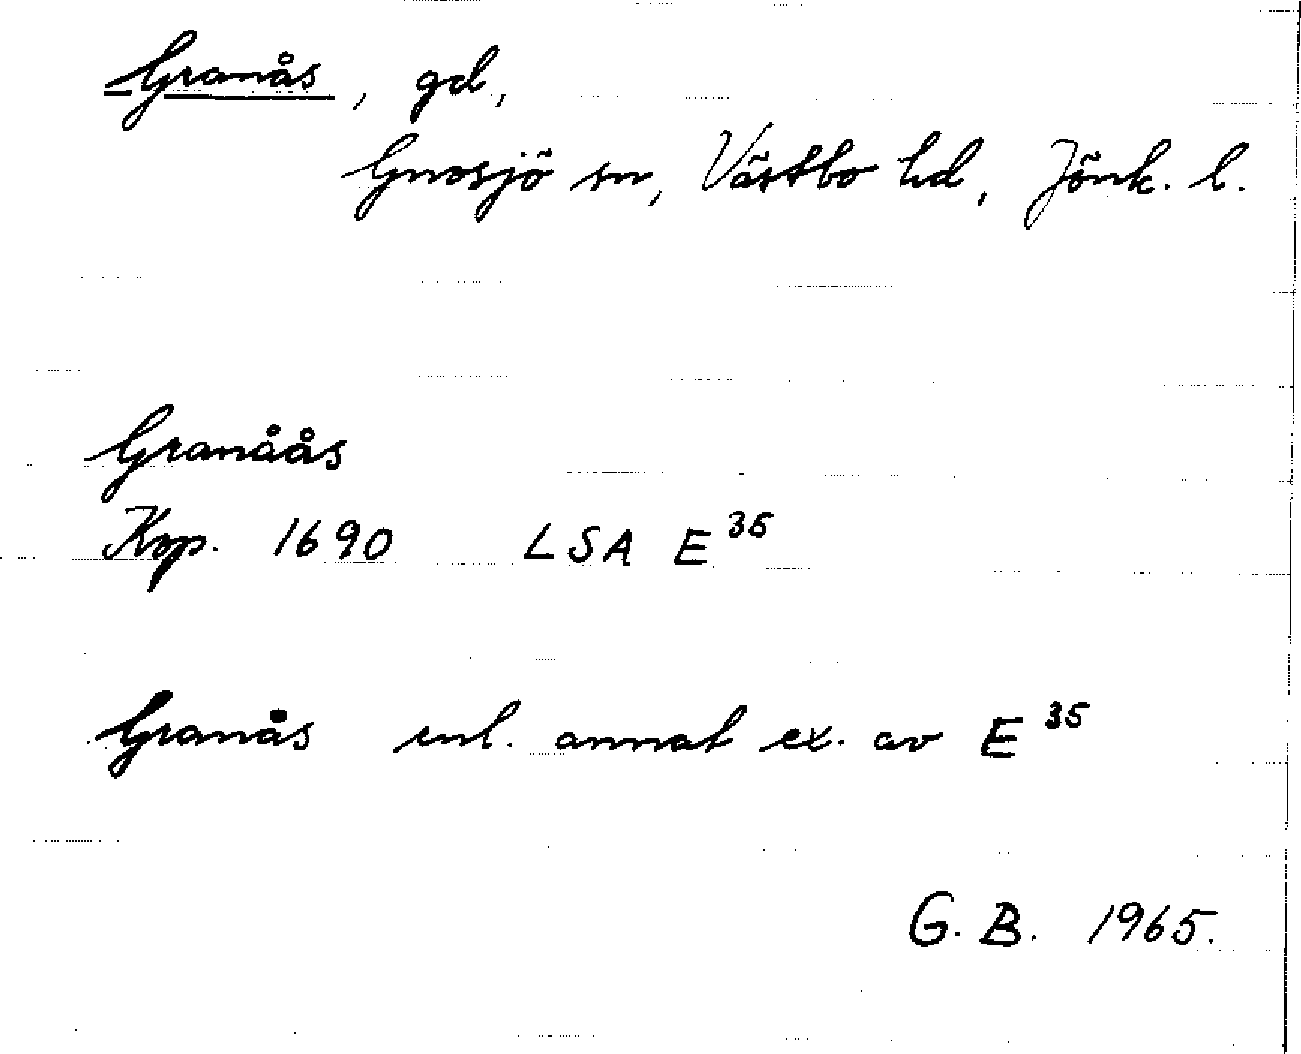 Granås, gd,
Gnosjö sn, Västbo hd, Jönk. l.
Granåås
Kop. 1690 LSA E 35
Granås enl. annat ex. av E 35
G. B. 1965.